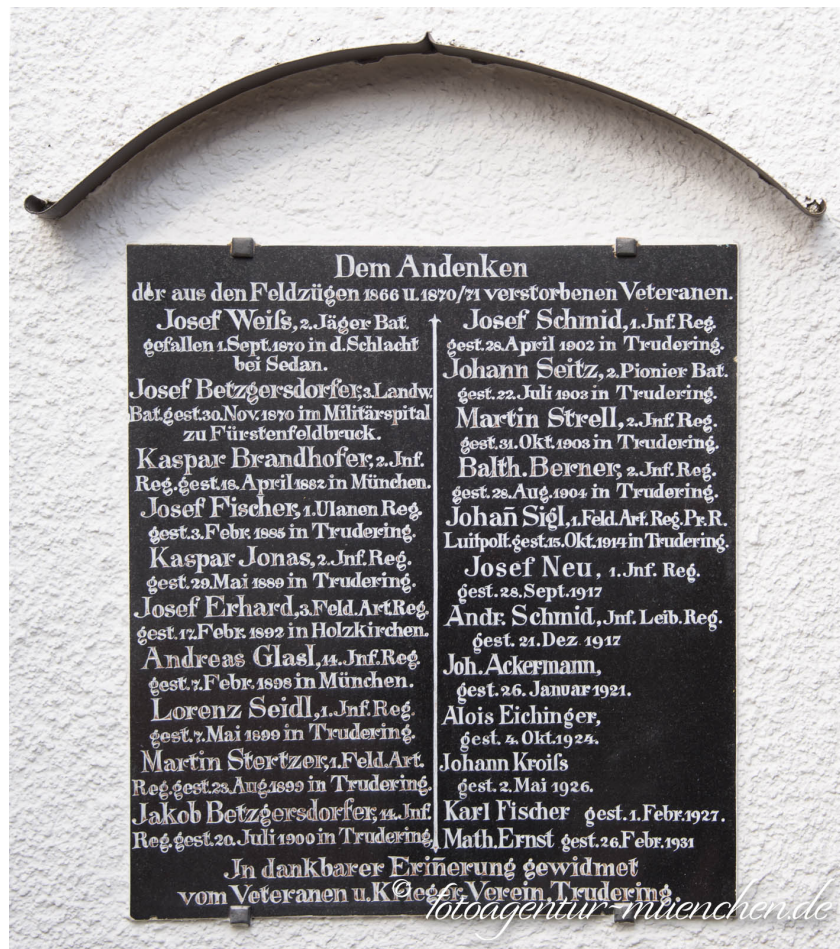 Dem Andenken
der aus den Feldzügen 1866 u. 1870/71 verstorbenen Veteranen.
Josef Weiſs, 2. Jäger Bat.
gefallen 1. Sept. 1870 in d. Schlacht
bei Sedan.
Josef Betzgersdorfer, 3. Landw.
Bat. gest. 30. Nov. 1870 im Militärspital
zu Fürstenfeldbruck.
Kaspar Brandhofer, 2. Jnf.
Reg. gest. 18. April 1882 in München.
Josef Fischer, 1. Ulanen Reg.
gest. 3. Febr. 1885 in Trudering.
Kaspar Jonas, 2. Jnf. Reg.
gest. 29. Mai 1889 in Trudering.
Josef Erhard, 3. Feld. Art. Reg.
gest. 17. Febr. 1892 in Holzkirchen.
Andreas Glasl, 14. Jnf. Reg.
gest. 7. Febr. 1898 in München.
Lorenz Seidl, 1. Jnf. Reg.
gest. 7. Mai 1899 in Trudering.
Martin Stertzer, 1. Feld. Art.
Reg. gest. 23. Aug. 1899 in Trudering.
Jakob Betzgersdorfer, 14. Jnf.
Reg. gest. 20. Juli 1900 in Trudering.
Josef Schmid, 1. Jnf. Reg.
gest. 28. April 1902 in Trudering.
Johann Seitz, 2. Pionier Bat.
gest. 22. Juli 1903 in Trudering.
Martin Strell, 2. Jnf. Reg.
gest. 31. Okt. 1903 in Trudering.
Balth. Berner, 2. Jnf. Reg.
gest. 28. Aug. 1904 in Trudering.
Johan̄ Sigl, 1. Feld. Art. Reg. Pr. R.
Luitpolt. gest. 15. Okt. 1914 in Trudering.
Josef Neu, 1. Jnf. Reg.
gest. 28. Sept. 1917
Andr. Schmid, Jnf. Leib. Reg.
gest. 21. Dez 1917
Joh. Ackermann,
gest. 26. Januar 1921.
Alois Eichinger,
gest. 4. Okt. 1924.
Johann Kroiſs
gest. 2. Mai 1926.
Karl Fischer gest. 1. Febr. 1927.
Math. Ernst gest. 26. Febr. 1931
Jn dankbarer Erin̄erung gewidmet
vom Veteranen u. Krieger-Verein, Trudering.
© fotoagentur-muenchen.de